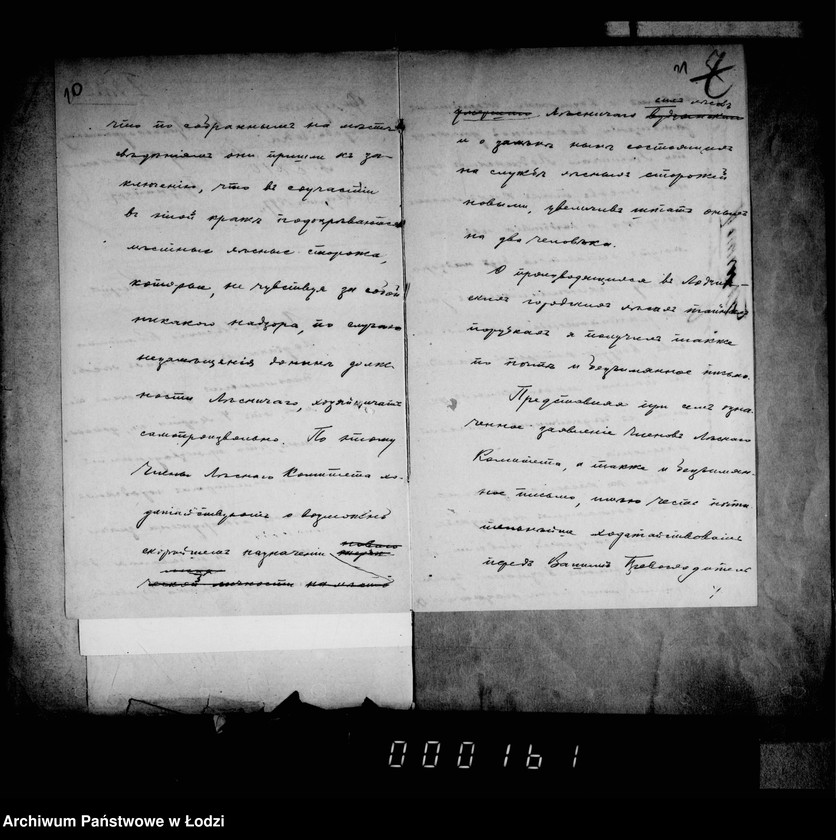 10
что по собраннымъ на мѣстѣ
свѣдѣніямъ они пришли къ за-
ключенію, что въ соучастіи
въ этой кражѣ подозрѣваются
мѣстные лѣсные сторожа,
которые, не чувствуя за собой
никакого надзора, по случаю
незамѣщенія донынѣ долж-
ности Лѣсничаго, хозяйничаютъ
самопроизвольно. По этому
Члены Лѣснаго Комитета хо-
датайствуютъ о возможнѣ
скорѣйшемъ назначеніи новаго
ческой личности на мѣсто
11 7
умершаго Лѣсничаго
и о замѣнѣ нынѣ состоящихъ
на службѣ лѣсныхъ сторожей
новыми, увеличивъ штатъ оныхъ
на два человѣка.
О производящихся въ Лодзин-
скихъ городскихъ лѣсахъ тайныхъ
порубкахъ я получилъ также
по почтѣ и безъимянное письмо.
Представляя при семъ озна-
ченное заявленіе Членовъ Лѣснаго
Комитета, а также и безъимян-
ное письмо, имѣю честь почти
тельнѣйше ходатайствовать
передъ Вашимъ Превосходитель
0000161
Archiwum Państwowe w Łodzi